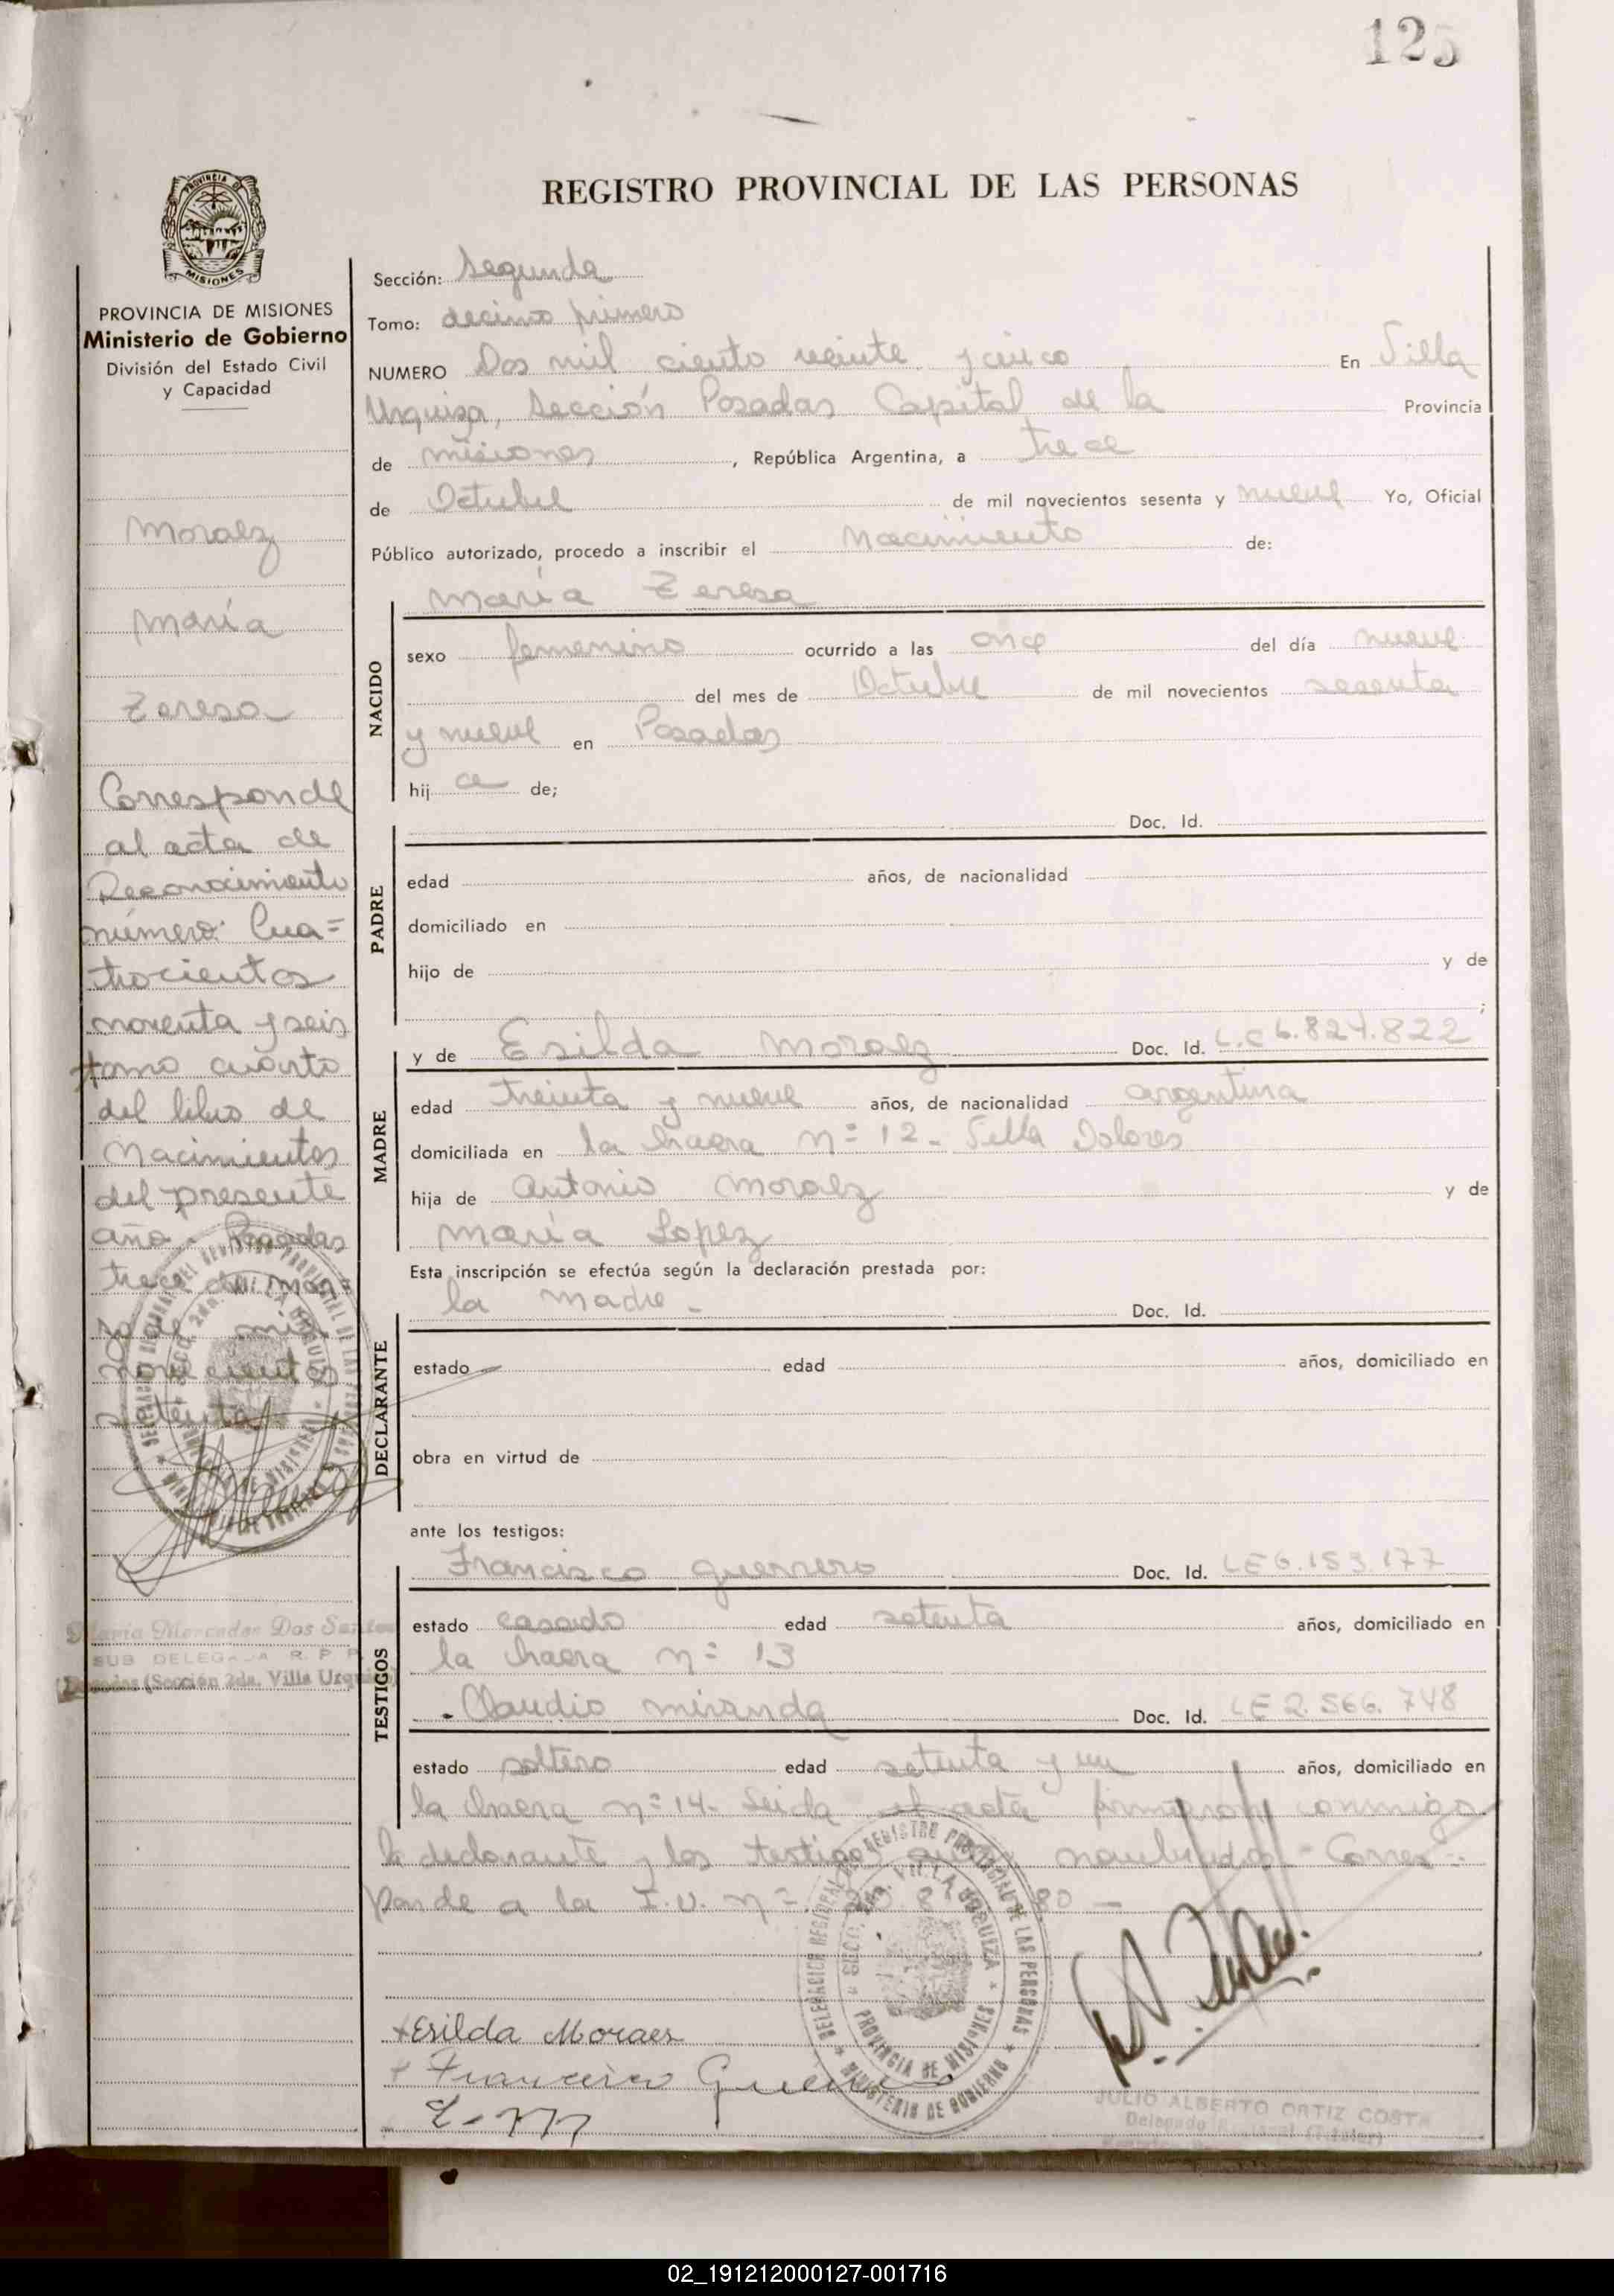 125
REGISTRO PROVINCIAL DE LAS PERSONAS
PROVINCIA DE MISIONES
Ministerio de Gobierno
División del Estado Civil
y Capacidad
Moraez
María
Teresa
Corresponde
al acta de
Reconocimiento
número: Cua=
trocientos
noventa y seis
tomo cuarto
del libro de
Nacimientos
del presente
año. Posadas
trece de mar=
zo de mil
novecientos
setenta
María Mercedes Dos Santos
SUB DELEGADA R. P. P.
Posadas (Sección 2da. Villa Urquiza)
Sección: Segunda
Tomo: decimo primero
NUMERO Dos mil ciento veinte y cinco En Villa
Urquiza, Sección Posadas Capital de la Provincia
de Misiones, República Argentina, a trece
de Octubre de mil novecientos sesenta y nueve Yo, Oficial
Público autorizado, procedo a inscribir el Nacimiento de:
María Teresa
NACIDO
sexo femenino ocurrido a las once del día nueve
del mes de Octubre de mil novecientos sesenta
y nueve en Posadas
hij a de;
Doc. Id.
PADRE
edad años, de nacionalidad
domiciliado en
hijo de y de
;
y de Esilda Moraez Doc. Id. L.C 6.824.822
MADRE
edad treinta y nueve años, de nacionalidad argentina
domiciliada en la chacra nº 12 - Villa Dolores
hija de Antonio Moraez y de
María Lopez
Esta inscripción se efectúa según la declaración prestada por:
la madre - Doc. Id.
DECLARANTE
estado edad años, domiciliado en
obra en virtud de
ante los testigos:
Francisco Guerrero Doc. Id. LE 6.153.177
TESTIGOS
estado casado edad setenta años, domiciliado en
la chacra nº 13
Claudio Miranda Doc. Id. LE 2.566.748
estado soltero edad setenta y un años, domiciliado en
la chacra nº 14 - Leída el acta firmaron conmigo
la declarante y los testigos nombrados - Corres=
ponde a la I.U. nº
DELEGACION REGIONAL DEL REGISTRO PROVINCIAL DE LAS PERSONAS
SECC. 2da. VILLA URQUIZA
PROVINCIA DE MISIONES
MINISTERIO DE GOBIERNO
Esilda Moraes
Francisco Guerrero
JULIO ALBERTO ORTIZ COSTA
Delegado Regional (Titular)
02_191212000127-001716